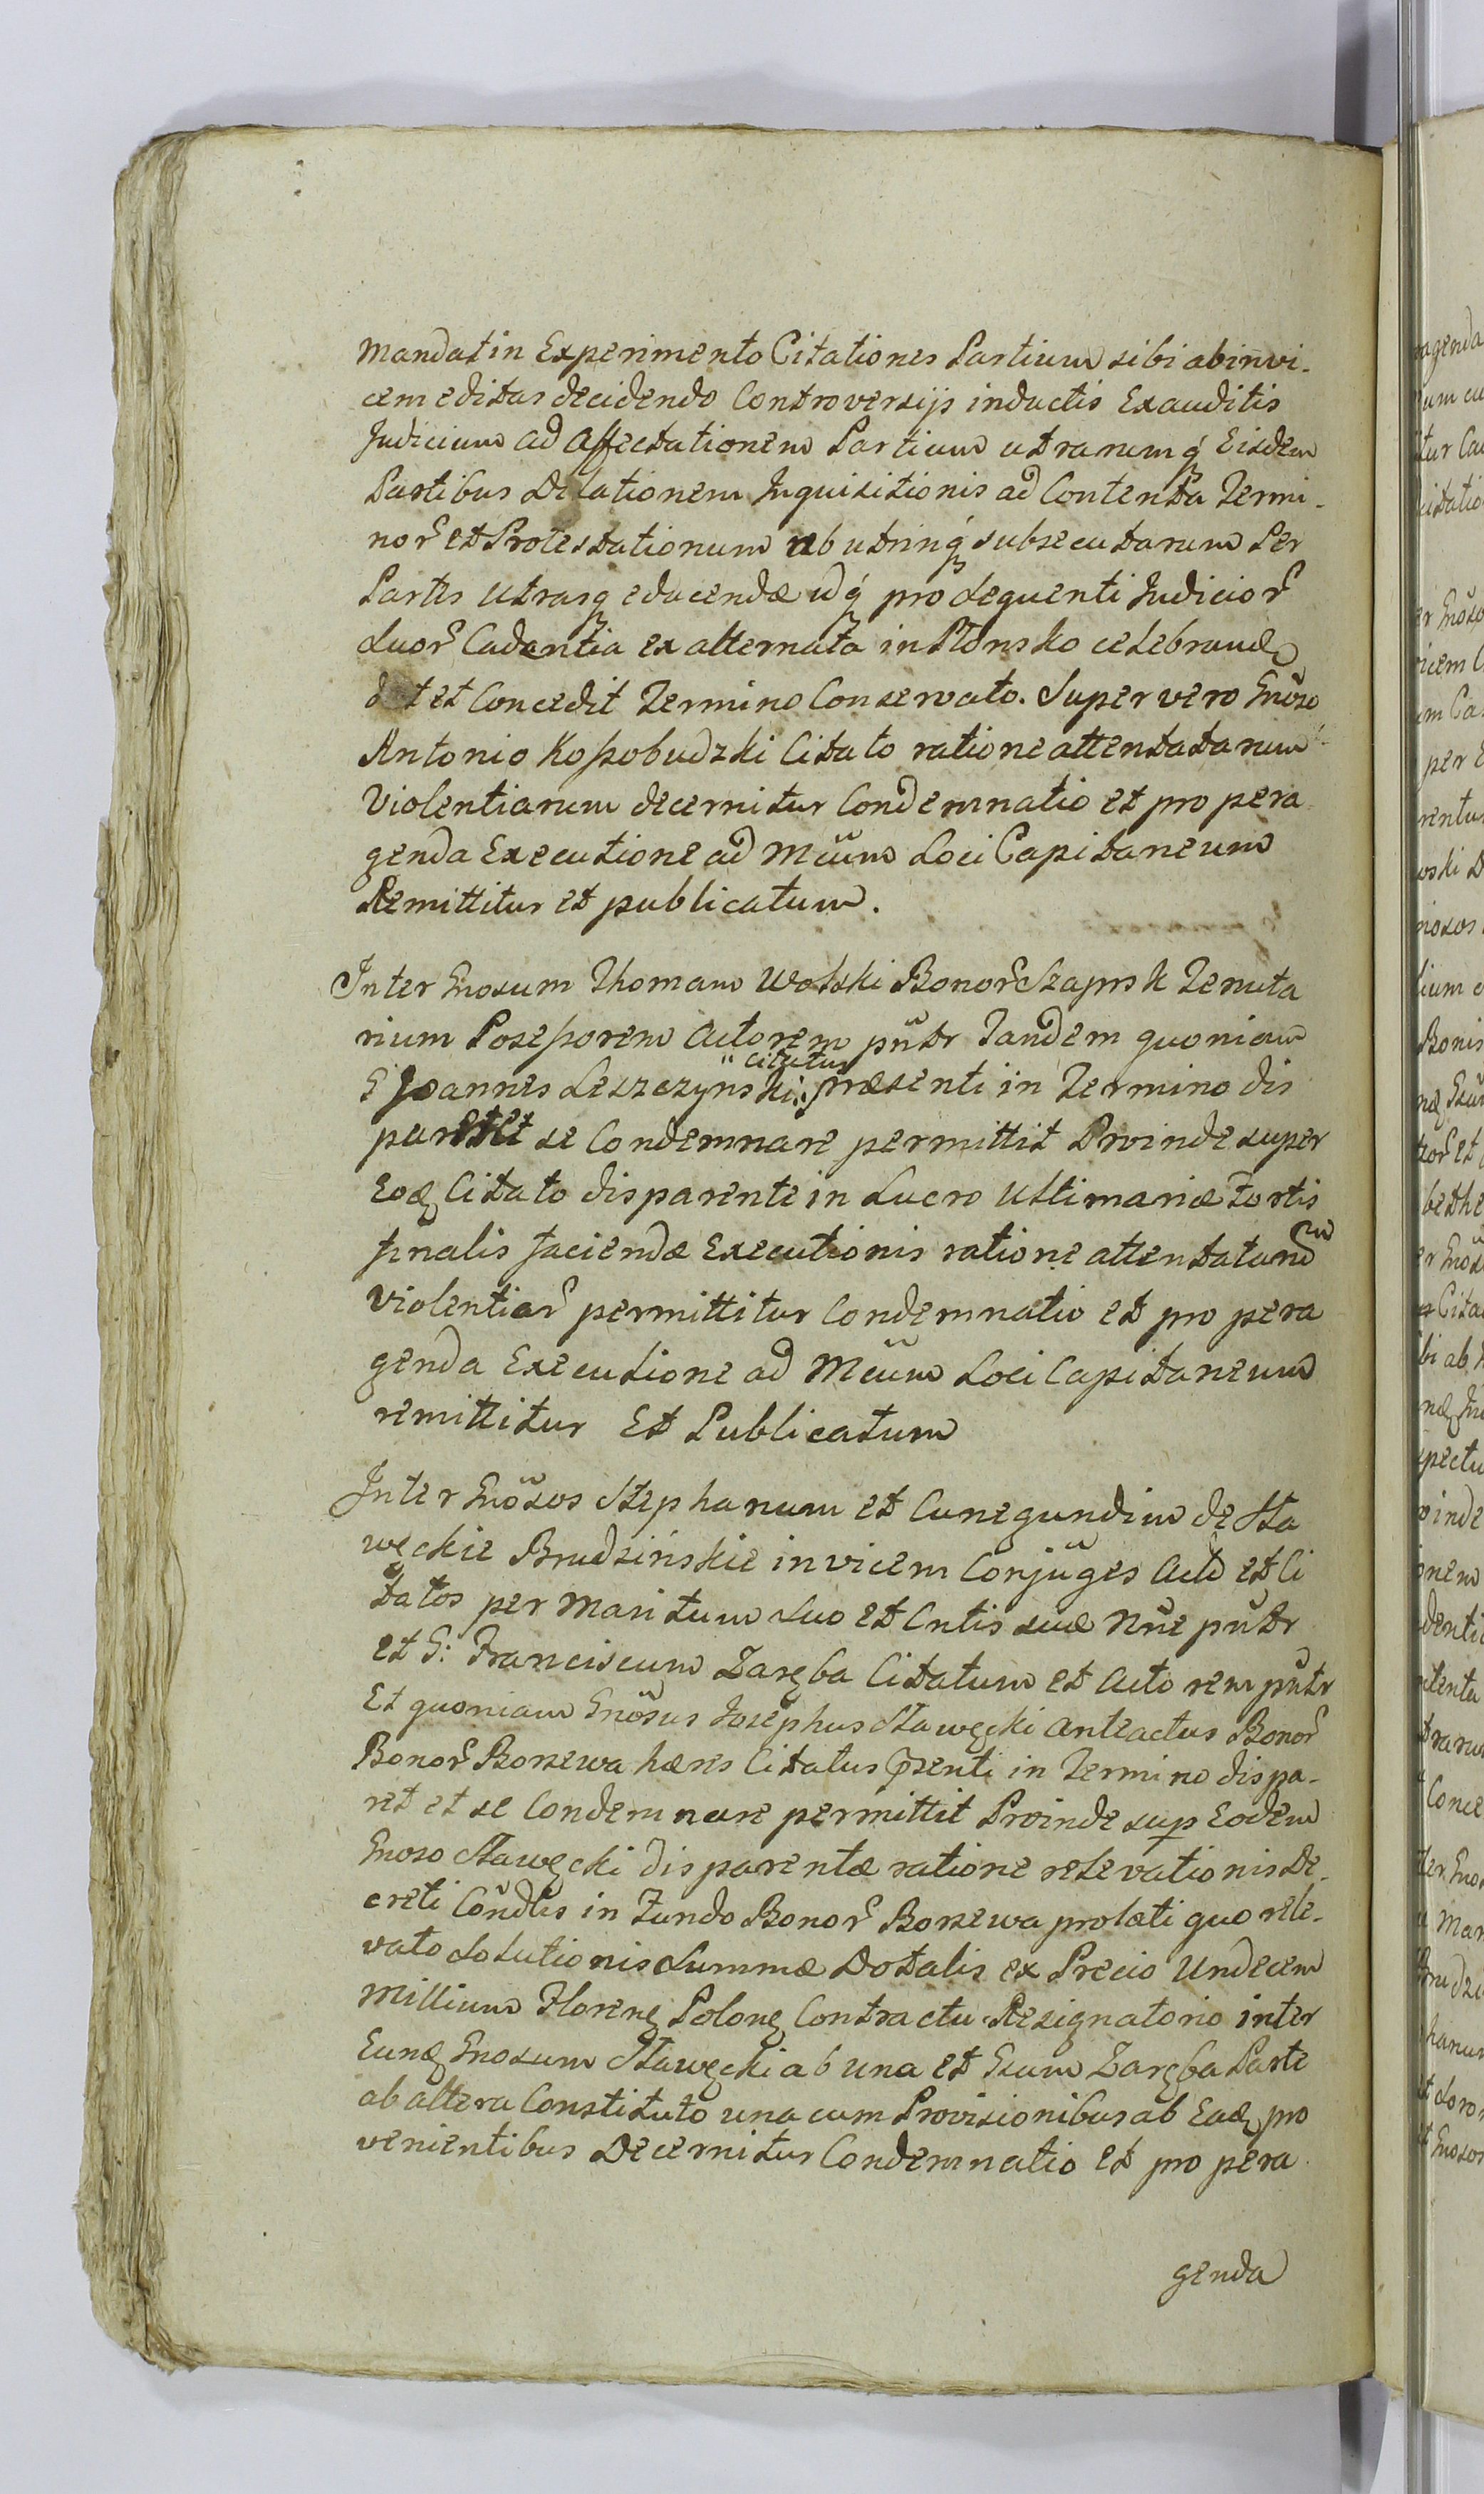 mandat in Experimento Citationes Partium sibi abinvi-
cem editas decidendo Controversijs inductis Exauditis
Judicium ad affectationem Partium utrarumq̃ Eisdem
Partibus Dilationem Inquisitionis ad Contenta Termi-
nor̃ et Protestationum ab utrinq̃ subsecutarum Per
Partes utrasq educendæ idq̃ pro sequenti Judicior̃
suor̃ Cadentia ex alternata in Płonsko celebrand
dat et Concedit Termino Conservato. Super vero Gnõso
Antonio Koſsobudzki Citato ratione attentatarum
Violentiarum decernitur Condemnatio et pro pera
genda Executione ad Mcũm Loci Capitaneum
Remittitur et publicatum.
Inter Gnosum Thomam Wolski Bonor̃ Szapsk Tenuta
rium Poseſsorem Actorem pñtr Tandem quoniam
G Joannes Leszczynski citatus præsenti in Termino dis
paret et se Condemnare permittit Proinde super
Eoq Citato disparente in Lucro Ultimariæ Fortis
finalis faciendæ Executionis ratione attentatarum
Violentiar̃ permittitur Condemnatio et pro pera
genda Executione ad Mcũm Loci Capitaneum
remittitur Et Publicatum
Inter Gnõsos Stephanum et Cunegundim de Sta
węckie Brudzińskie invicem Conjũges Act̃ et Ci
tatos per Maritum suo et Cntis suæ Nñe pñtr
et G: Franciscum Zaręba Citatum et Actorem pñtr
Et quoniam Gnõsus Josephus Stawęcki anteactus Bonor̃
Bonor̃ Borzewa hæres Citatus p̃senti in Termino dispa-
ret et se Condemnare permittit Proinde sup Eodem
Gnoso Stawęcki disparentæ ratione relevationis De-
creti Cõndtis in Fundo Bonor̃ Borzewa prolati quo rele-
vato Solutionis Summæ Dotalis ex Precio Undecem
Millium Floren Polon Contractu Resignatorio inter
Eund Gnosum Stawęcki ab una et Gsum Zaręba Parte
ab altera Constituto una cum Provisionibus ab Ead pro
venientibus Decernitur Condemnatio et pro pera
genda